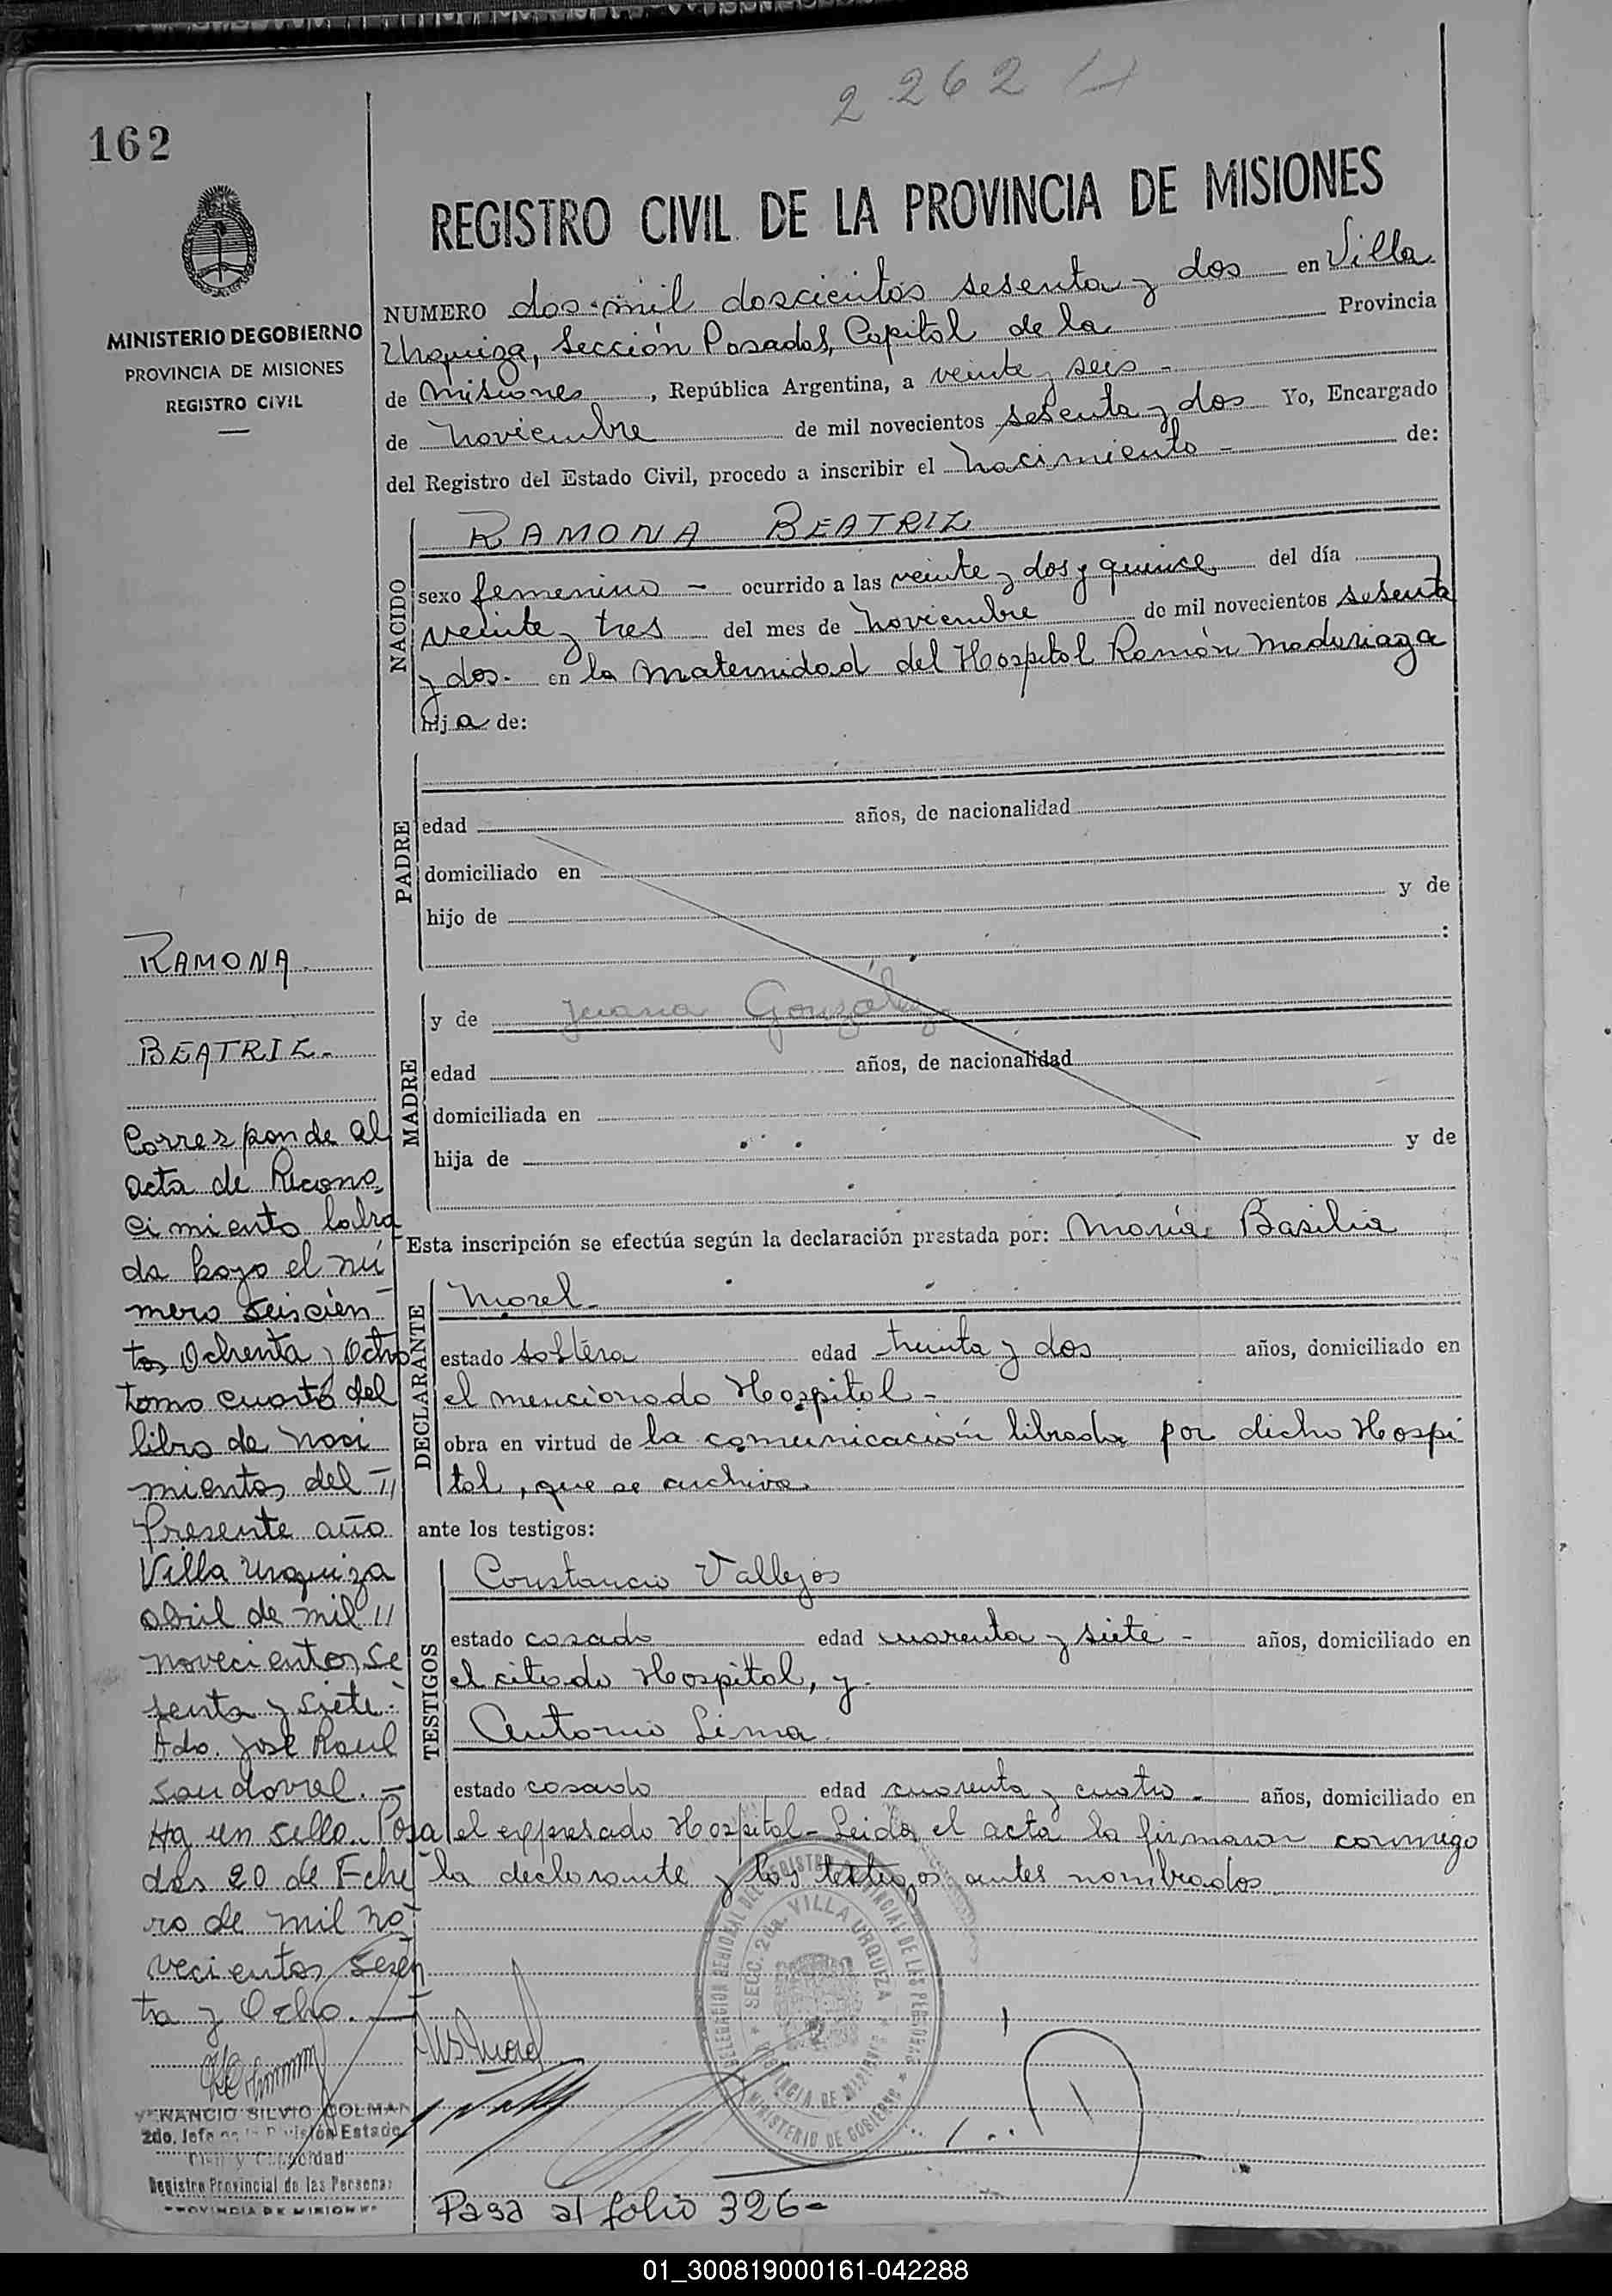 2262
162
REGISTRO CIVIL DE LA PROVINCIA DE MISIONES
MINISTERIO DE GOBIERNO
PROVINCIA DE MISIONES
REGISTRO CIVIL
NUMERO dos mil doscientos sesenta y dos en Villa
Urquiza, Sección Posadas, Capital de la Provincia
de Misiones, República Argentina, a veinte y seis -
de noviembre de mil novecientos sesenta y dos Yo, Encargado
del Registro del Estado Civil, procedo a inscribir el nacimiento - de:
NACIDO
RAMONA BEATRIZ
sexo femenino - ocurrido a las veinte y dos y quince del día
veinte y tres del mes de noviembre de mil novecientos sesenta
y dos. en la Maternidad del Hospital Ramón Madariaga
hija de:
PADRE
edad años, de nacionalidad
domiciliado en
hijo de y de
:
MADRE
y de Juana González
edad años, de nacionalidad
domiciliada en
hija de y de
Esta inscripción se efectúa según la declaración prestada por: María Basilia
DECLARANTE
Morel-
estado soltera edad treinta y dos años, domiciliado en
el mencionado Hospital -
obra en virtud de la comunicación librada por dicho Hospi
tal, que se archiva.
ante los testigos:
TESTIGOS
Constancio Vallejos
estado casado edad cuarenta y siete - años, domiciliado en
el citado Hospital, y
Antonio Lima.
estado casado edad cuarenta y cuatro - años, domiciliado en
el expresado Hospital - Leida el acta la firmaron conmigo
la declarante y los testigos antes nombrados
RAMONA
BEATRIZ-
Corresponde al
acta de Recono
cimiento labra
da bajo el nú
mero seiscien
tos Ochenta y Ocho
tomo cuarto del
libro de naci
mientos del
Presente año
Villa Urquiza
abril de mil
novecientos se
senta y siete.
Fdo. José Raul
Sandoval.-
Hay un sello. Posa
das 20 de Febre
ro de mil no
vecientos sesen
ta y Ocho.-
VENANCIO SILVIO COLMAN
2do. Jefe de la División Estado
Civil y Capacidad
Registro Provincial de las Personas
PROVINCIA DE MISIONES
DELEGACION REGIONAL DEL REGISTRO PROVINCIAL DE LAS PERSONAS
SECC. 2da. VILLA URQUIZA
PROVINCIA DE MISIONES
MINISTERIO DE GOBIERNO
Pasa al folio 326-
01_300819000161-042288